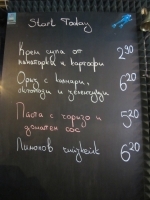 Start Today
Крем супа от
пащърнак и картофи 2.90
Ориз с калмари,
октопод и зеленчуци 6.20
Паста с чоризо и
доматен сос 5.20
Лимонов чийзкейк 6.20